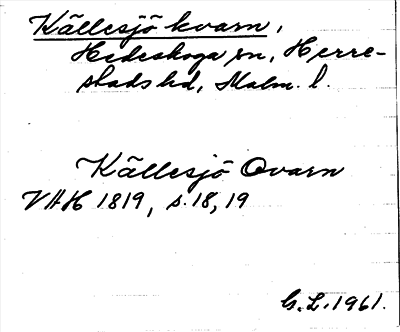 Källesjö kvarn,
Hedeskoga sn, Herre-
stads hd, Malm. l.
Källesjö Qvarn
VAH 1819, s. 18, 19
G.L. 1961.